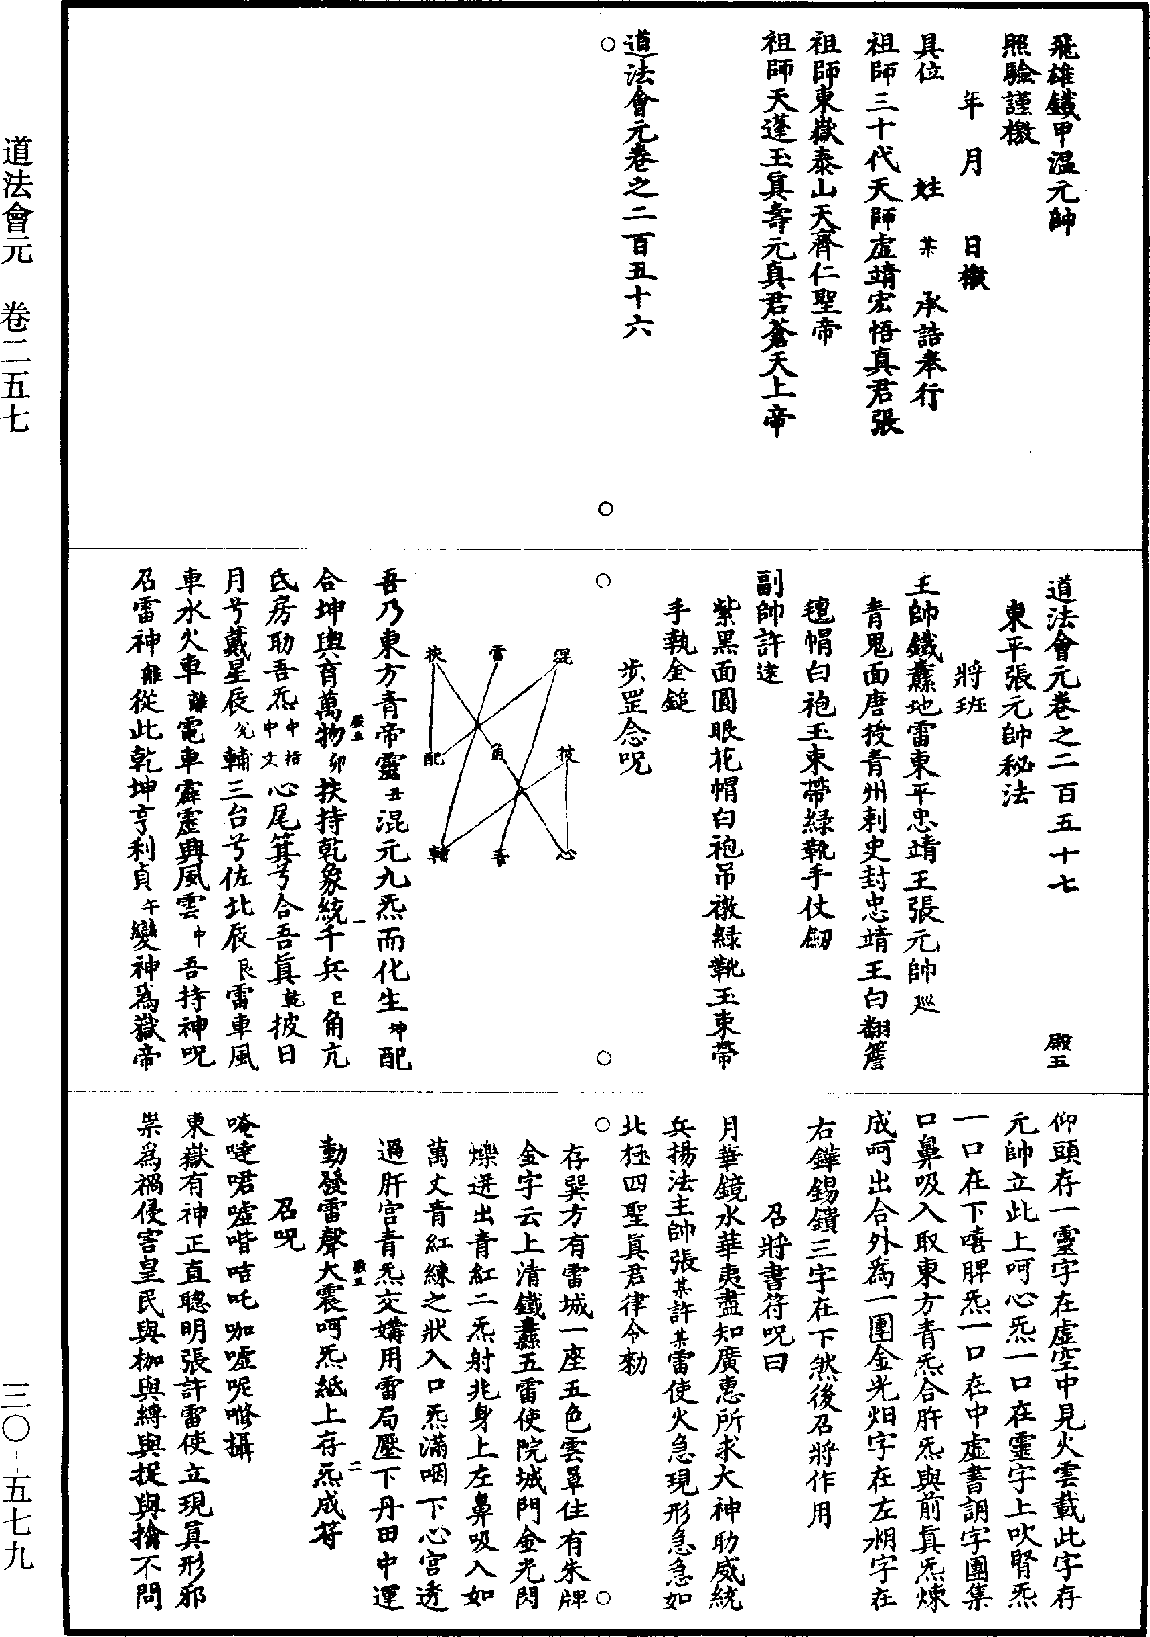 飛雄鐵甲溫元帥
照驗謹檄
年月　日檄
具位　姓　某　承誥奉行
祖師三十代天師虛靖宏悟真君張
祖師東嶽泰山天齊仁聖帝
祖師天蓬玉真壽元真君蒼天上帝
道法會元卷之二百五十六
道法會元卷之二百五十七　殿五
東平張元帥秘法
將班
主帥鐵纛地雷東平忠靖王張元帥巡
青鬼面唐授青州刺史封忠靖王白翻簷
氊帽白袍玉束帶綠靴手仗劒
副帥許遠
紫黑面圓眼花帽白袍吊𧞔綠靴玉束帶
手執金鎚
步罡念呪
混　雷　扶
披　角　配
心　吾　輔
吾乃東方青帝靈丑混元九炁而化生坤配
合坤輿育萬物卯扶持乾象統千兵巳角亢
氐房助吾炁中指中文心尾箕兮合吾真乾披日
月兮戴星辰兌輔三台兮佐北辰艮雷車風
車水火車離電車霹靂興風雲中吾持神呪
召雷神離從此乾坤亨利貞午變神為嶽帝
仰頭存一靈字在虛空中見火雲載此字存
元帥立此上呵心炁一口在靈字上吹腎炁
一口在下嘻脾炁一口在中虛書詷字團集
口鼻吸入取東方青炁合肝炁與前真炁煉
成呵出合外為一團金光𤆬字在左𣶏字在
右鏵鍚鐨三字在下然後召將作用
召將書符呪曰
月華鏡水華夷盡知廣惠所求大神助威統
兵揚法主帥張某許某雷使火急現形急急如
北極四聖真君律令勑
存巽方有雷城一座五色雲罩住有朱牌
金字云上清鐵纛五雷使院城門金光閃
爍迸出青紅二炁射兆身上左鼻吸入如
萬丈青紅練之狀入口炁滿咽下心宮透
過肝宮青炁交媾用雷局壓下丹田中運
動發雷聲大震呵炁紙上存炁成符
召呪
唵噠唨噓喈咭吒咖噓呢噆攝
東嶽有神正直聰明張許雷使立現真形邪
祟為禍侵害皇民與枷與縛與捉與擒不問
道法會元　卷二五七
三〇-五七九